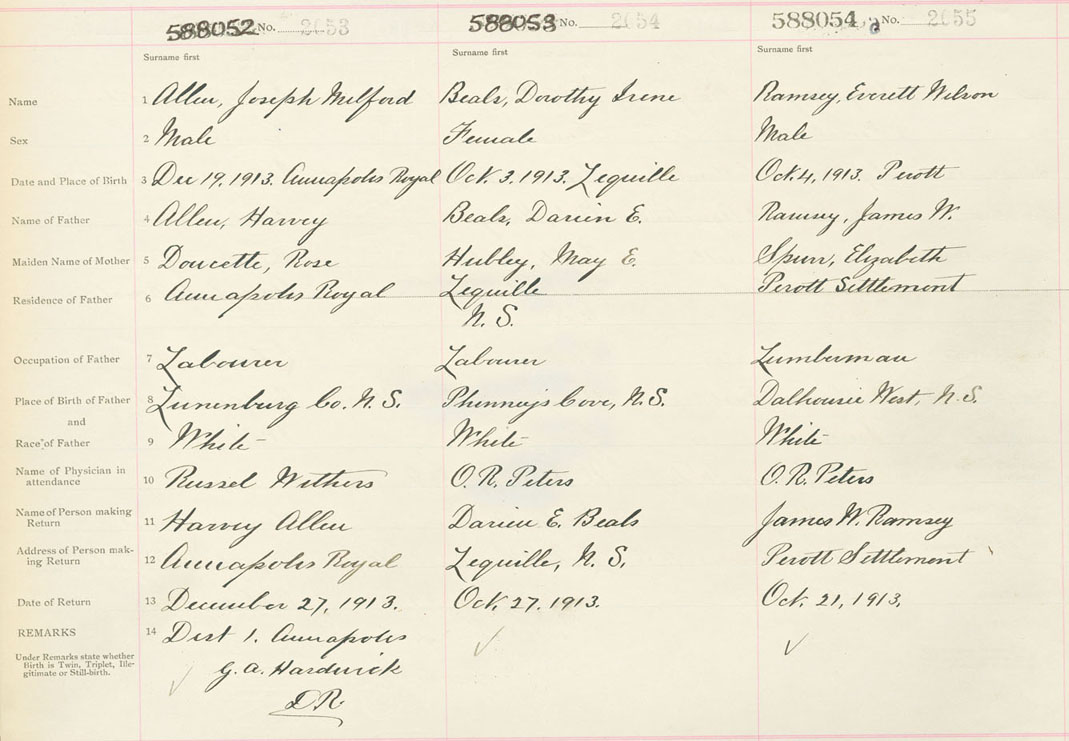 588052 No. 2053 588053 No. 2054 588054 a No. 2055
Surname first Surname first Surname first
Name 1 Allen, Joseph Milford Beals, Dorothy Irene Ramsey, Everett Wilson
Sex 2 Male Female Male
Date and Place of Birth 3 Dec 19, 1913. Annapolis Royal Oct. 3. 1913. Lequille Oct. 4, 1913. Perott
Name of Father 4 Allen, Harvey Beals, Darien E. Ramsey, James W.
Maiden Name of Mother 5 Doucette, Rose Hubley, May E. Spurr, Elizabeth
Residence of Father 6 Annapolis Royal Lequille Perott Settlement
N. S.
Occupation of Father 7 Labourer Labourer Lumberman
Place of Birth of Father 8 Lunenburg Co. N. S. Phinneys Cove, N. S. Dalhousie West, N. S.
and
Race of Father 9 White White White
Name of Physician in
attendance 10 Russel Withers O. R. Peters O. R. Peters
Name of Person making
Return 11 Harvey Allen Darien E. Beals James W. Ramsey
Address of Person mak-
ing Return 12 Annapolis Royal Lequille, N. S. Perott Settlement
Date of Return 13 December 27, 1913. Oct. 27. 1913. Oct. 21, 1913.
REMARKS 14 Dist 1. Annapolis
Under Remarks state whether
Birth is Twin, Triplet, Ille-
gitimate or Still-birth.
G. A. Hardwick
D. R.